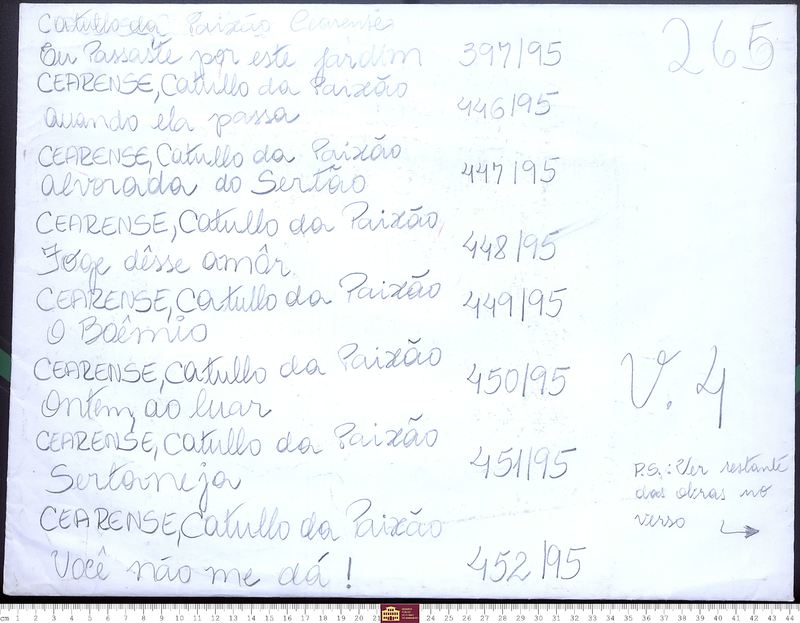 Catullo da Paixão Cearense
Tu Passaste por este jardim 397/95
265
CEARENSE, Catullo da Paixão
Quando ela passa 446/95
CEARENSE, Catullo da Paixão
Alvorada do Sertão 447/95
CEARENSE, Catullo da Paixão
Foge dêsse amôr 448/95
CEARENSE, Catullo da Paixão
O Boêmio 449/95
CEARENSE, Catullo da Paixão
Ontem, ao luar 450/95
V. 4
CEARENSE, Catullo da Paixão
Sertaneja 451/95
P.S.: Ver restante
das obras no
verso
CEARENSE, Catullo da Paixão
Você não me dá! 452/95